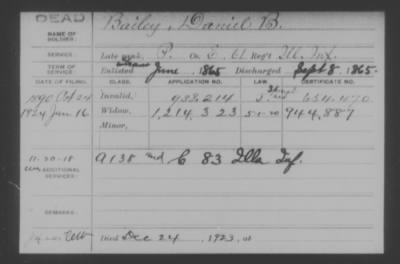 DEAD
Bailey, Daniel B.
NAME OF SOLDIER:
SERVICE: Late rank, P. Co. E, 61 Reg't Ill. Inf.
TERM OF SERVICE: Enlisted June, 1865 Discharged Sept 8, 1865.
DATE OF FILING. CLASS. APPLICATION NO. LAW CERTIFICATE NO.
1890 Oct 24 Invalid, 933,214
1924 Jan 16 Widow, 1,214,323 5-1-20 944,887
Minor,
11-20-18 A 138 Ind & C 83 Ills Inf.
ADDITIONAL SERVICES:
REMARKS:
Died Dec 24, 1923, at